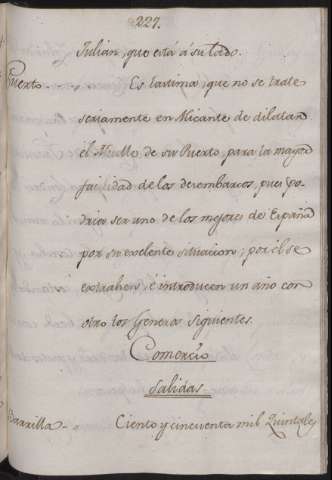 227.
Julian, que está á su lado.
Puerto Es lastima, que no se trate
seriamente en Alicante de dilatar
el Muelle de su Puerto, para la mayor
facilidad de los desembarcos, pues po-
dria ser uno de los mejores de España
por su exelente situacion; por él se
extrahen, é introducen un año con
otro los Generos siguientes.
Comercio
Salidas
Barrilla Ciento y cincuenta mil Quintales